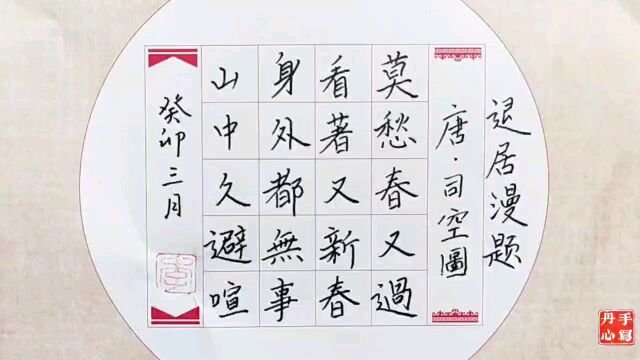 退居漫题
唐·司空圖
莫愁春又過
看著又新春
身外都無事
山中久避喧
癸卯三月
手寫
丹心